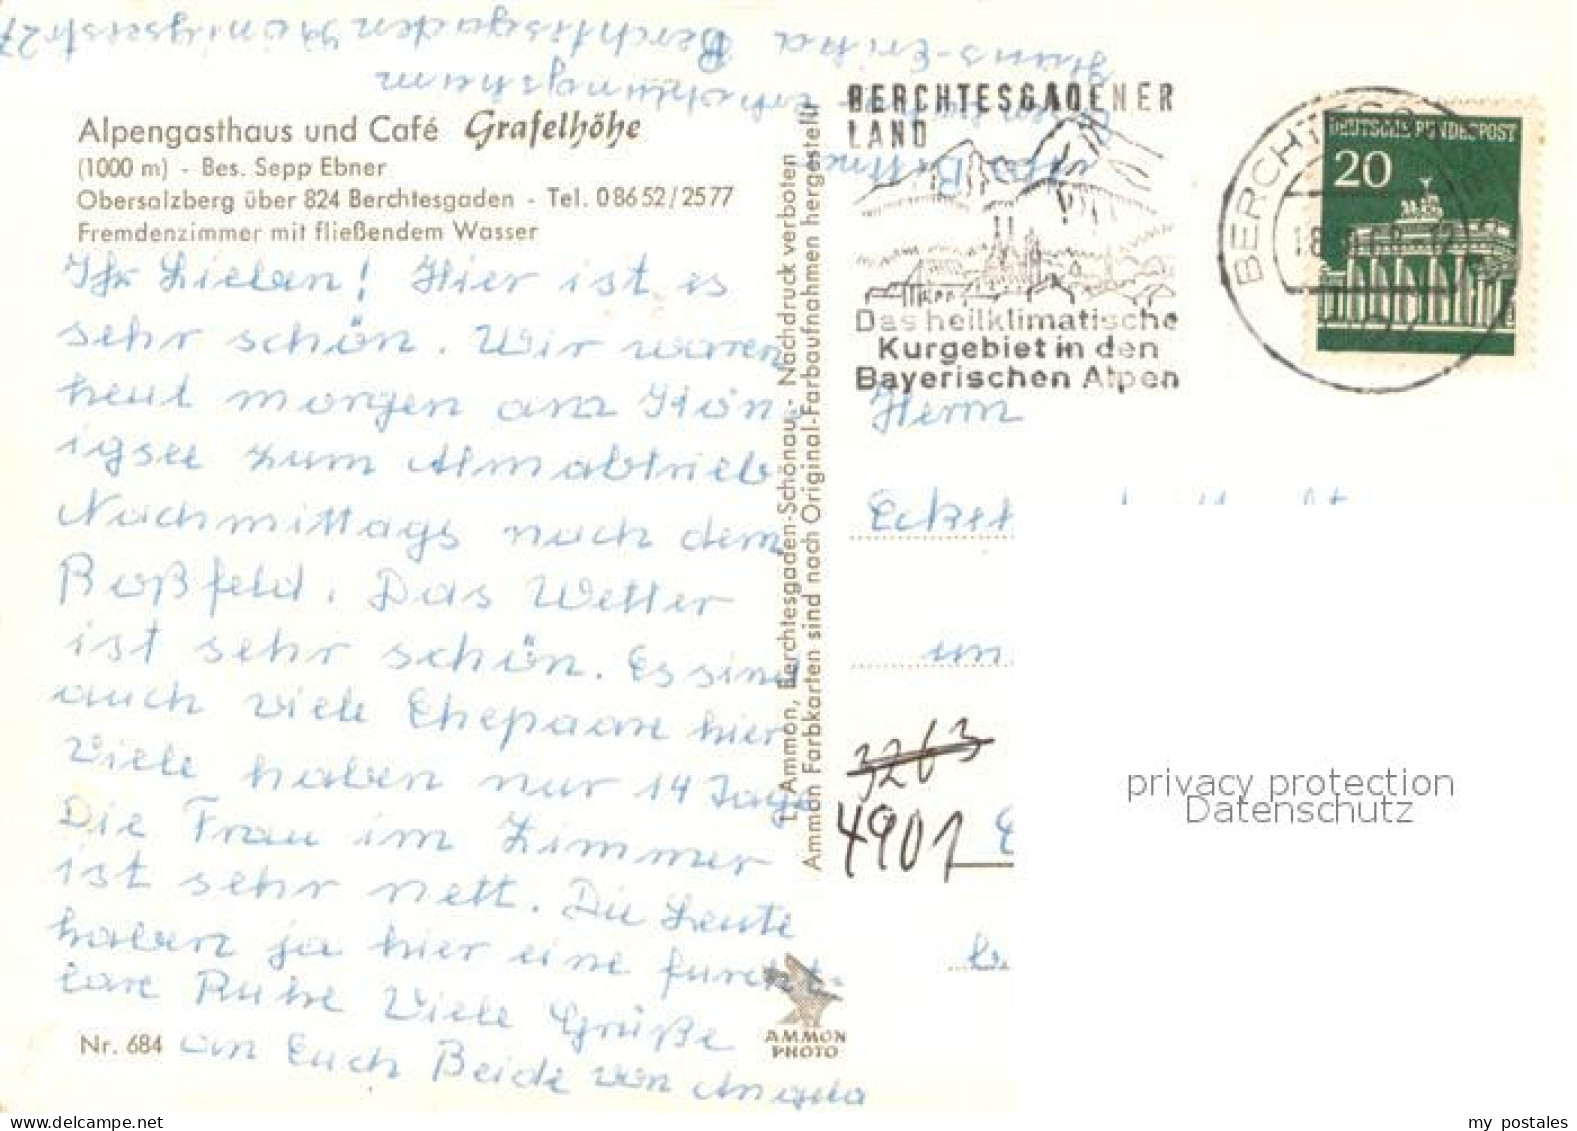 Alpengasthaus und Café Grafelhöhe
(1000 m) - Bes. Sepp Ebner
Obersalzberg über 824 Berchtesgaden - Tel. 08652/2577
Fremdenzimmer mit fließendem Wasser
Ihr Lieben! Hier ist es
sehr schön. Wir waren
heut morgen am Kön-
igsee zum Almabtrieb
Nachmittags nach dem
Roßfeld. Das Wetter
ist sehr schön. Es sind
auch viele Ehepaare hier
Viele haben nur 14 Tage
Die Frau im Zimmer
ist sehr nett. Die Leute
haben ja hier eine furcht-
bare Ruhe Viele Grüße
an Euch Beide von Angela
Nr. 684
L. Ammon, Berchtesgaden-Schönau - Nachdruck verboten
Ammon Farbkarten sind nach Original-Farbaufnahmen hergestellt
AMMON
PHOTO
Haus-Erika Berchtesgaden
BERCHTESGADENER
LAND
Das heilklimatische
Kurgebiet in den
Bayerischen Alpen
BERCHTESG
DEUTSCHE BUNDESPOST
20
Herrn
3263
4901
privacy protection
Datenschutz
my postales